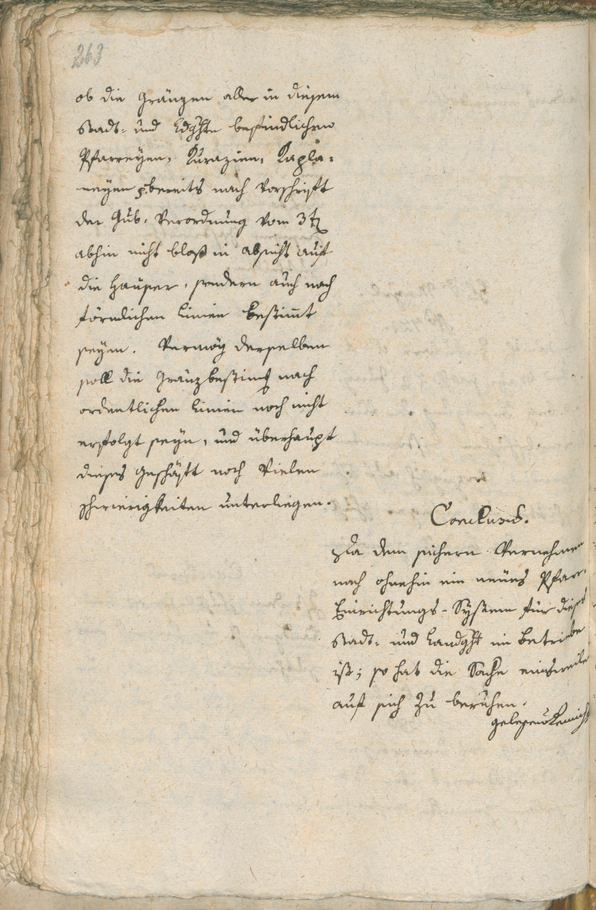 263
ob die Gränzen aller in diesem
Stadt- und Ldghte befindlichen
Pfarreyen, Kurazien, Kapla-
neyen bereits nach Vorschrift
der Gub. Verordnung vom
abhin nicht bloß in absicht auf
die Häuser, sondern auch nach
förmlichen Linien bestimt
seyen. Vermög derselben
soll die Gränzbestimg nach
ordentlichen Linien noch nicht
erfolgt seyn, und überhaupt
dieses Geschäft noch vielen
schwierigkeiten unterliegen.
Conclusum.
Da dem sichern Vernehmen
nach ohnehin ein neues Pfarr-
Einrichtungs-System für dieses
Stadt- und Landght im Betriebe
ist; so hat die Sache einsweile
auf sich zu beruhen.
gelesen